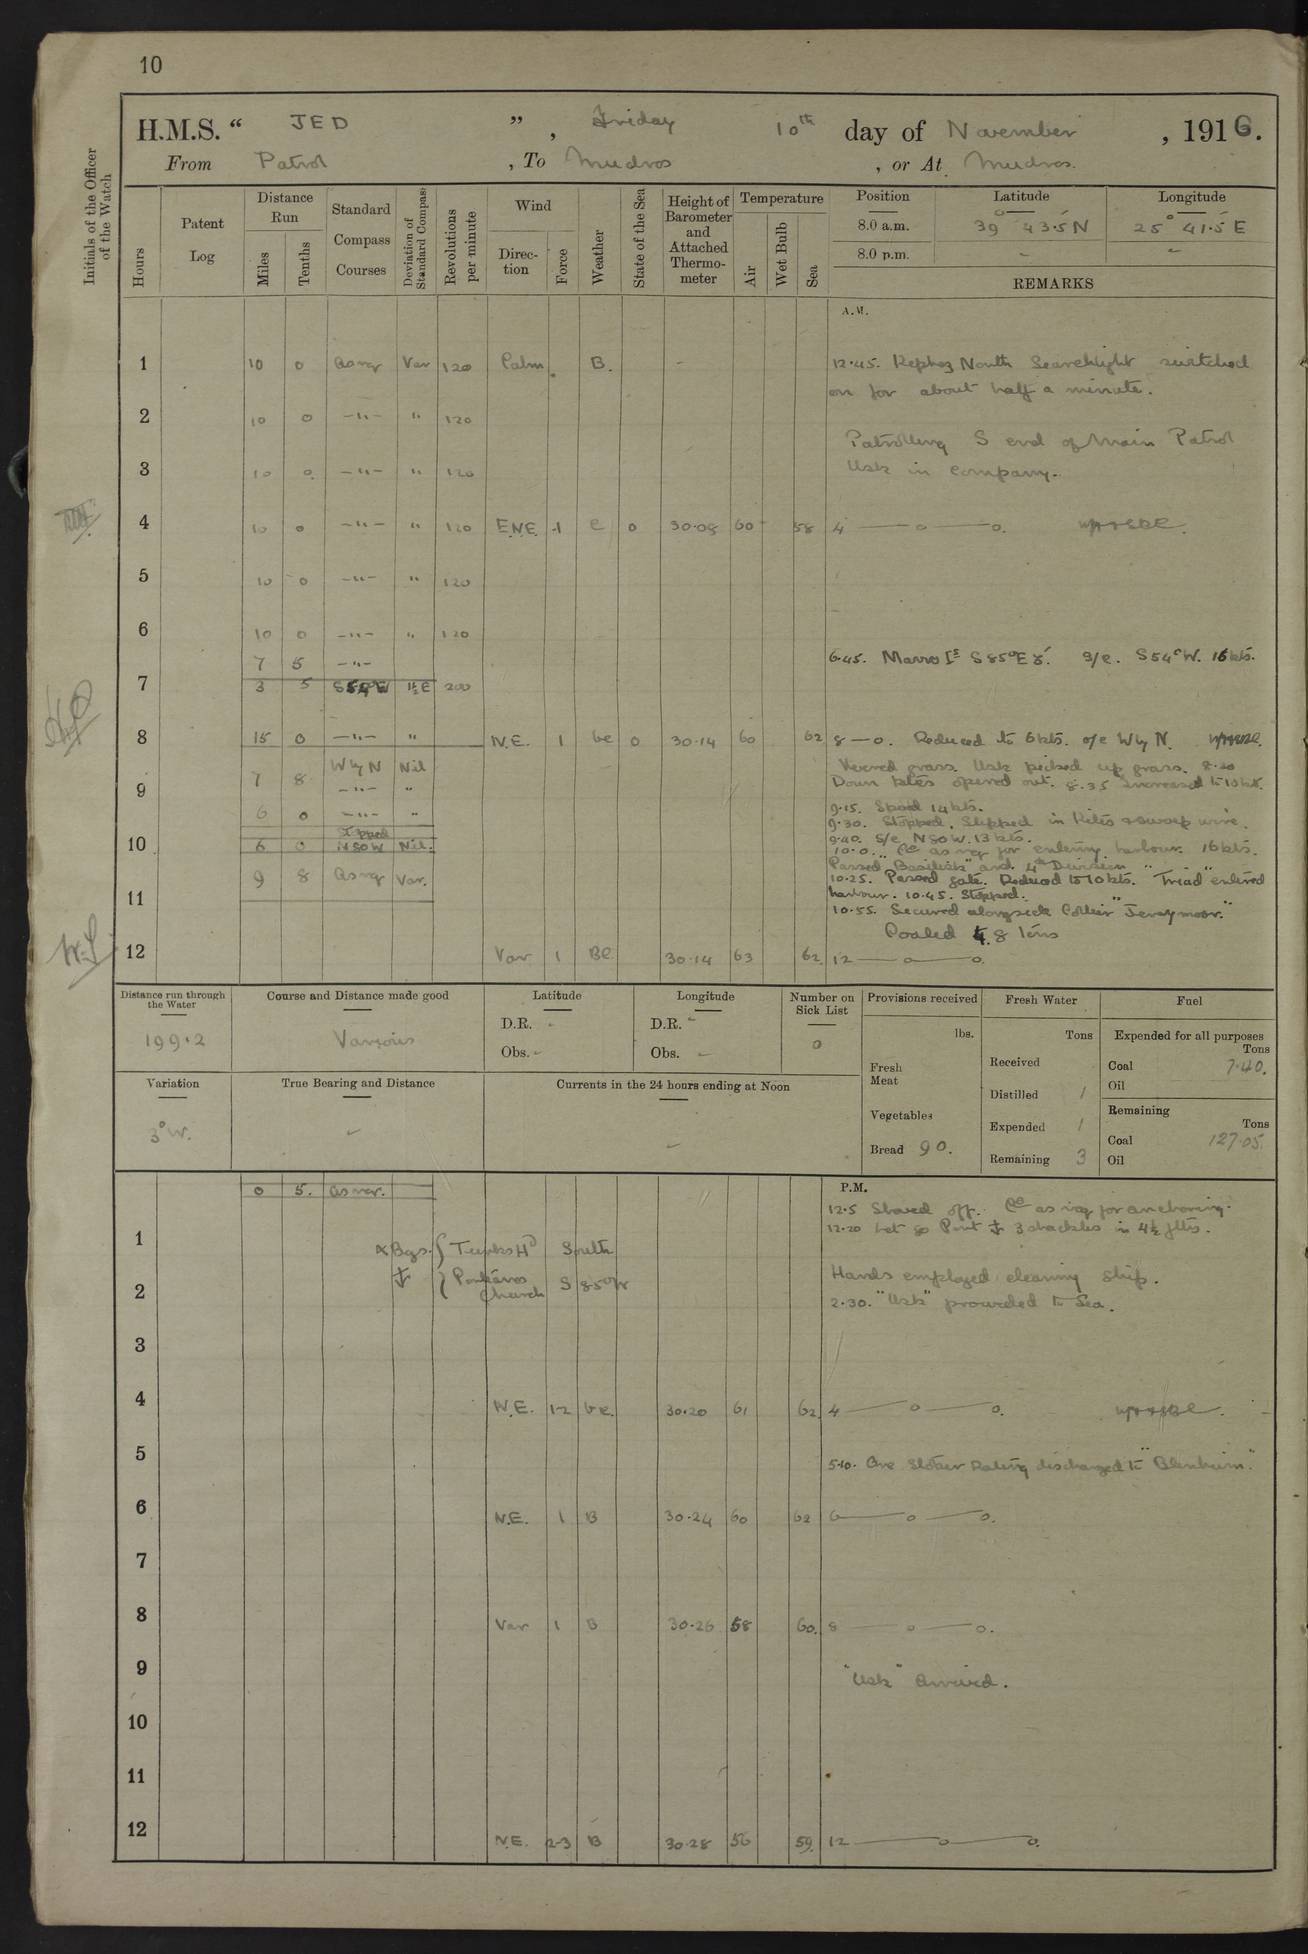 10
H.M.S. “ JED ” , Friday 10th day of November , 1916.
From Patrol , To Mudros , or At Mudros.
Initials of the Officer of the Watch
Hours
Patent Log
Distance Run
Miles
Tenths
Standard Compass Courses
Deviation of Standard Compass
Revolutions per minute
Wind
Direction
Force
Weather
State of the Sea
Height of Barometer and Attached Thermometer
Temperature
Air
Wet Bulb
Sea
Position Latitude Longitude
8.0 a.m. 39° 43.5' N 25° 41.5' E
8.0 p.m. - -
REMARKS
A.M.
1 10 0 As req Var 120 Calm B. - 12.45. Kephez North Searchlight switched
on for about half a minute.
2 10 0 -"- " 120
Patrolling S end of Main Patrol
3 10 0 -"- " 120 Usk in company.
4 10 0 -"- " 120 E.N.E. 1 c 0 30.08 60 58 4 — o — o.
5 10 0 -"- " 120
6 10 0 -"- " 120
7 5 -"- 6.45. Mavro Is S 85° E S/c. S 54° W. 15 kts.
7 3 5 S54W 1½E 200
8 15 0 -"- " N.E. 1 bc 0 30.14 60 62 8 — o. Reduced to 6 kts. a/c W by N.
W by N Nil Veered grass. Usk picked up grass. 8.20
9 7 8 -"- " Down kites opened out. 8.35 Increased to 10 kts.
6 0 -"- " 9.15. Speed 14 kts.
Stopped 9.30. Stopped. Slipped in Kites & sweep wire.
10 6 0 N80W Nil. 9.40. S/c N 80 W. 13 kts.
10.0. Co as req for entering harbour. 16 kts.
9 8 As req Var. Passed "Basilisk" and 4th Division
10.25. Passed gate. Reduced to 10 kts. "Triad" entered
11 harbour. 10.45. Stopped.
10.55. Secured alongside Collier "Jerseymoor."
Coaled 48 tons
12 Var 1 BC 30.14 63 62 12 — o — o.
Distance run through the Water
199.2
Course and Distance made good
Various
Latitude
D.R. -
Obs. -
Longitude
D.R. -
Obs. -
Number on Sick List
0
Provisions received
lbs.
Fresh Meat
Vegetables
Bread 90.
Fresh Water
Tons
Received
Distilled 1
Expended 1
Remaining 3
Fuel
Expended for all purposes
Tons
Coal 7.40.
Oil
Remaining
Tons
Coal 127.05.
Oil
Variation
3° W.
True Bearing and Distance
Currents in the 24 hours ending at Noon
P.M.
0 5. As req. 12.5 Shoved off. Co as req for anchoring.
12.20 Let go Port ⚓ 3 shackles in 4½ fths.
1 Bgs. { Turks Hd South
⚓ { Portianos Church S 85° W Hands employed cleaning ship.
2 2.30. "Usk" proceeded to Sea.
3
4 N.E. 1-2 bc. 30.20 61 62 4 — o — o.
5 5.10. One Stoker Rating discharged to "Blenheim."
6 N.E. 1 B 30.24 60 62 6 — o — o.
7
8 Var 1 B 30.26 58 60. 8 — o — o.
9 "Usk" arrived.
10
11
12 N.E. 2-3 B 30.28 56 59. 12 — o — o.